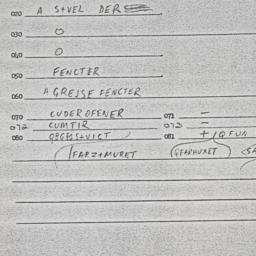 020 A S+VEL DER
030 O
040 O
050 FENCTER
060 AGREJSE FENCTER
070 CUDEROFENER 071 =
072 CUMTIR 073 =
080 081 + IQFUN
FARZ+MURET GFARHUXET